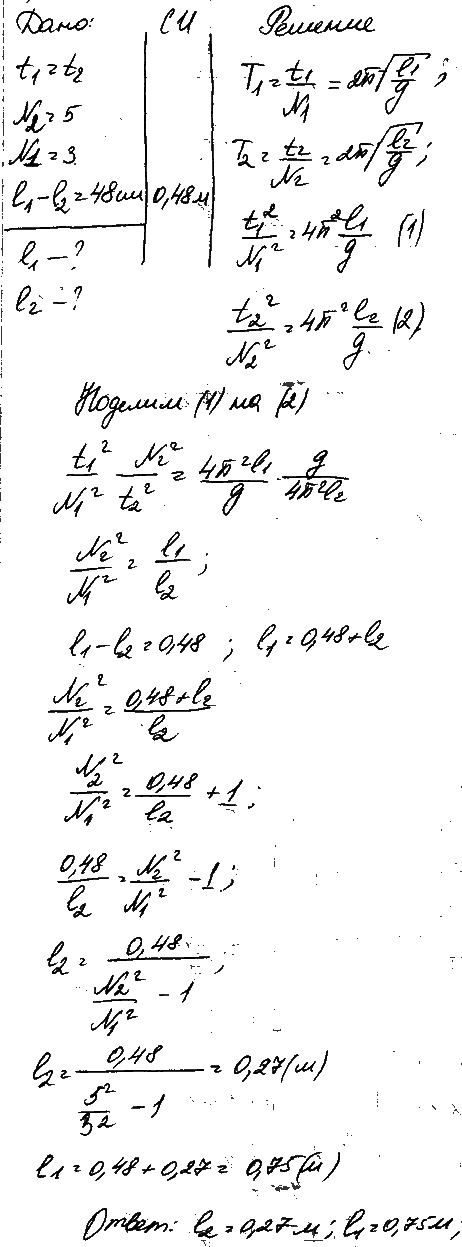 Дано: СИ Решение
t₁=t₂
N₂=5
N₁=3
l₁-l₂=48см 0,48м
l₁-?
l₂-?
T₁=t₁/N₁=2π√(l₁/g);
T₂=t₂/N₂=2π√(l₂/g);
t₁²/N₁²=4π²l₁/g (1)
t₂²/N₂²=4π²l₂/g (2)
Поделим (1) на (2)
t₁²/N₁² N₂²/t₂² = 4π²l₁/g · g/4π²l₂
N₂²/N₁² = l₁/l₂;
l₁-l₂=0,48; l₁=0,48+l₂
N₂²/N₁²=(0,48+l₂)/l₂
N₂²/N₁²=0,48/l₂+1;
0,48/l₂=N₂²/N₁²-1;
l₂=0,48/(N₂²/N₁²-1);
l₂=0,48/(5²/3²-1)=0,27(м)
l₁=0,48+0,27=0,75(м)
Ответ: l₂=0,27м; l₁=0,75м;